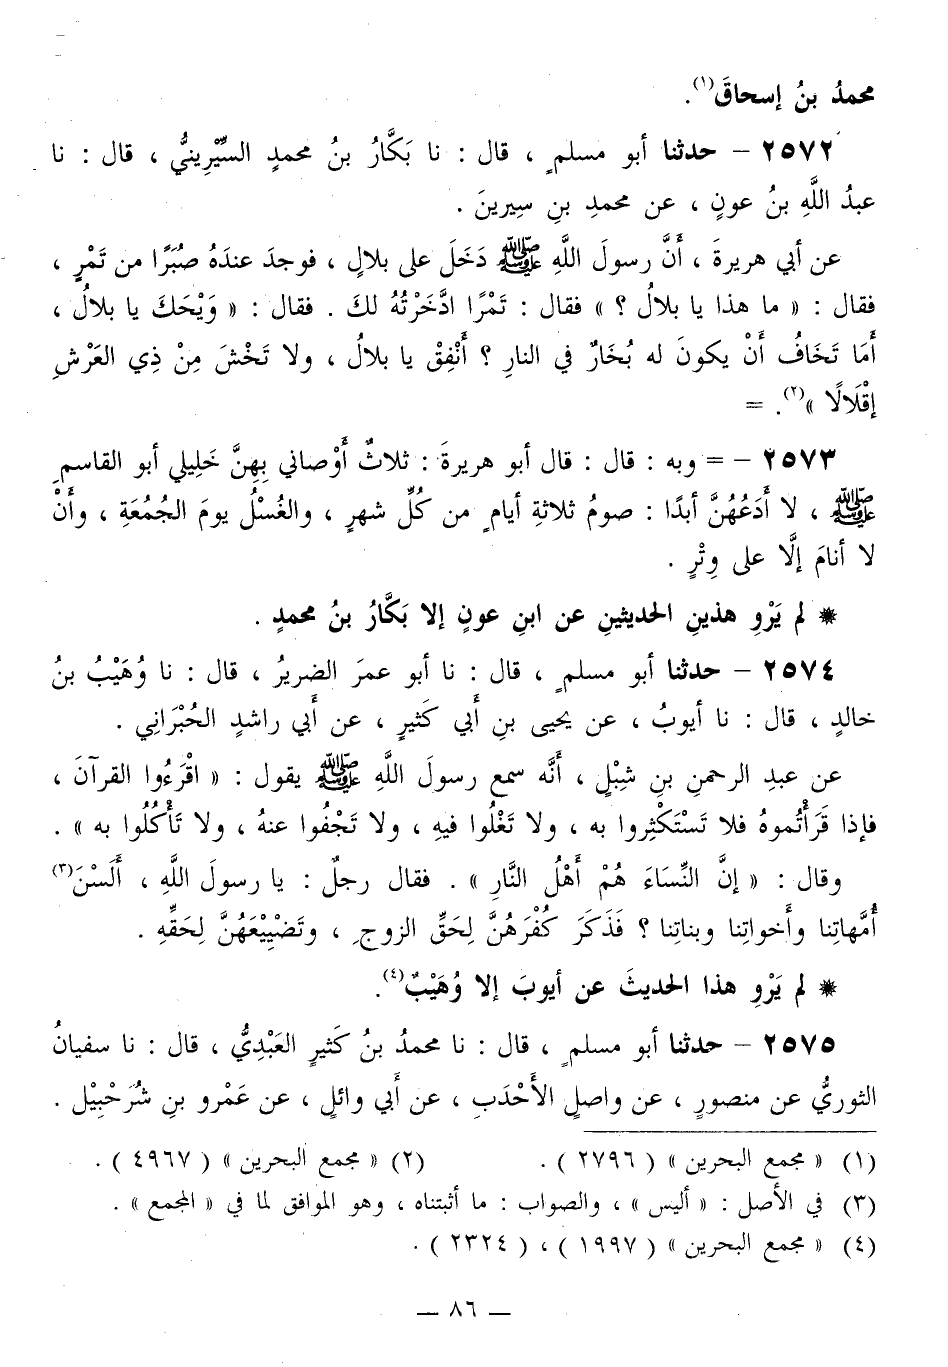 محمدُ بنُ إسحاقَ(١).
٢٥٧٢ – حدثنا أبو مسلمٍ ، قال : نا بَكَّارُ بنُ محمدٍ السِّيْرِينيُّ ، قال : نا
عبدُ اللَّهِ بنُ عونٍ ، عن محمدِ بنِ سِيرينَ .
عن أبي هريرةَ ، أَنَّ رسولَ اللَّهِ ﷺ دَخَلَ على بلالٍ ، فوجدَ عندَهُ صُبَرًا من تَمْرٍ ،
فقال : « ما هذا يا بلالُ ؟ » فقال : تَمْرًا ادَّخَرْتُهُ لكَ . فقال : « وَيْحَكَ يا بلالُ ،
أَمَا تَخَافُ أَنْ يكونَ له بُخَارٌ في النارِ ؟ أَنْفِقْ يا بلالُ ، ولا تَخْشَ مِنْ ذِي العَرْشِ
إقْلَالًا »(٢). =
٢٥٧٣ – = وبه : قال : قال أبو هريرةَ : ثلاثٌ أَوْصاني بِهِنَّ خَلِيلي أبو القاسمِ
ﷺ ، لا أَدَعُهُنَّ أبدًا : صومُ ثلاثةِ أيامٍ من كُلِّ شهرٍ ، والغُسْلُ يومَ الجُمُعَةِ ، وأَنْ
لا أنامَ إلَّا على وِتْرٍ .
* لم يَرْوِ هذينِ الحديثينِ عن ابنِ عونٍ إلا بَكَّارُ بنُ محمدٍ .
٢٥٧٤ – حدثنا أبو مسلمٍ ، قال : نا أبو عمرَ الضريرُ ، قال : نا وُهَيْبُ بنُ
خالدٍ ، قال : نا أيوبُ ، عن يحيى بنِ أبي كَثيرٍ ، عن أَبي راشدٍ الحُبْرَانِي .
عن عبدِ الرحمنِ بنِ شِبْلٍ ، أَنَّه سمع رسولَ اللَّهِ ﷺ يقول : « اقْرَءُوا القرآنَ ،
فإذا قَرَأْتُموهُ فلا تَسْتَكْثِروا به ، ولا تَغْلُوا فيهِ ، ولا تَجْفُوا عنهُ ، ولا تَأْكُلُوا به » .
وقال : « إنَّ النِّسَاءَ هُمْ أَهْلُ النَّارِ » . فقال رجلٌ : يا رسولَ اللَّهِ ، أَلَسْنَ(٣)
أُمَّهاتِنا وأَخواتِنا وبناتِنا ؟ فَذَكَرَ كُفْرَهُنَّ لِحَقِّ الزوجِ ، وتَضْيِيْعَهُنَّ لِحَقِّهِ .
* لم يَرْوِ هذا الحديثَ عن أيوبَ إلا وُهَيْبٌ(٤).
٢٥٧٥ – حدثنا أبو مسلمٍ ، قال : نا محمدُ بنُ كَثيرٍ العَبْدِيُّ ، قال : نا سفيانُ
الثوريُّ عن منصورٍ ، عن واصلٍ الأَحْدَبِ ، عن أَبي وائلٍ ، عن عَمْرو بنِ شُرَحْبِيْل .
(١) « مجمع البحرين » ( ٢٧٩٦ ) . (٢) « مجمع البحرين » ( ٤٩٦٧ ) .
(٣) في الأصل : « أليس » ، والصواب : ما أثبتناه ، وهو الموافق لما في « المجمع » .
(٤) « مجمع البحرين » ( ١٩٩٧ ) ، ( ٢٣٢٤ ) .
— ٨٦ —